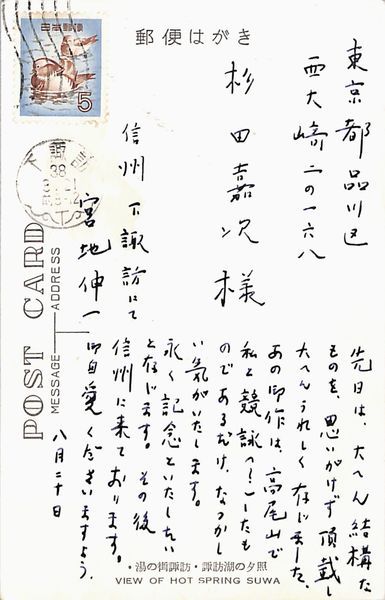 日本郵便
5
郵便はがき
下諏訪
38
東京都品川区
西大崎二の一六八
杉田嘉次様
信州下諏訪にて
宮地伸一
POST CARD
MESSAGE
ADDRESS
先日は、大へん結構な
ものを、思いがけず頂戴し
大へんうれしく存じました。
あの御作は、高尾山で
私と競詠(?)したも
のであるだけ、なつかし
い気がいたします。
永く記念といたしたい
と存じます。その後
信州に来ております。
御自愛くださいますよう。
八月二十日
・湯の街諏訪・諏訪湖の夕照
VIEW OF HOT SPRING SUWA